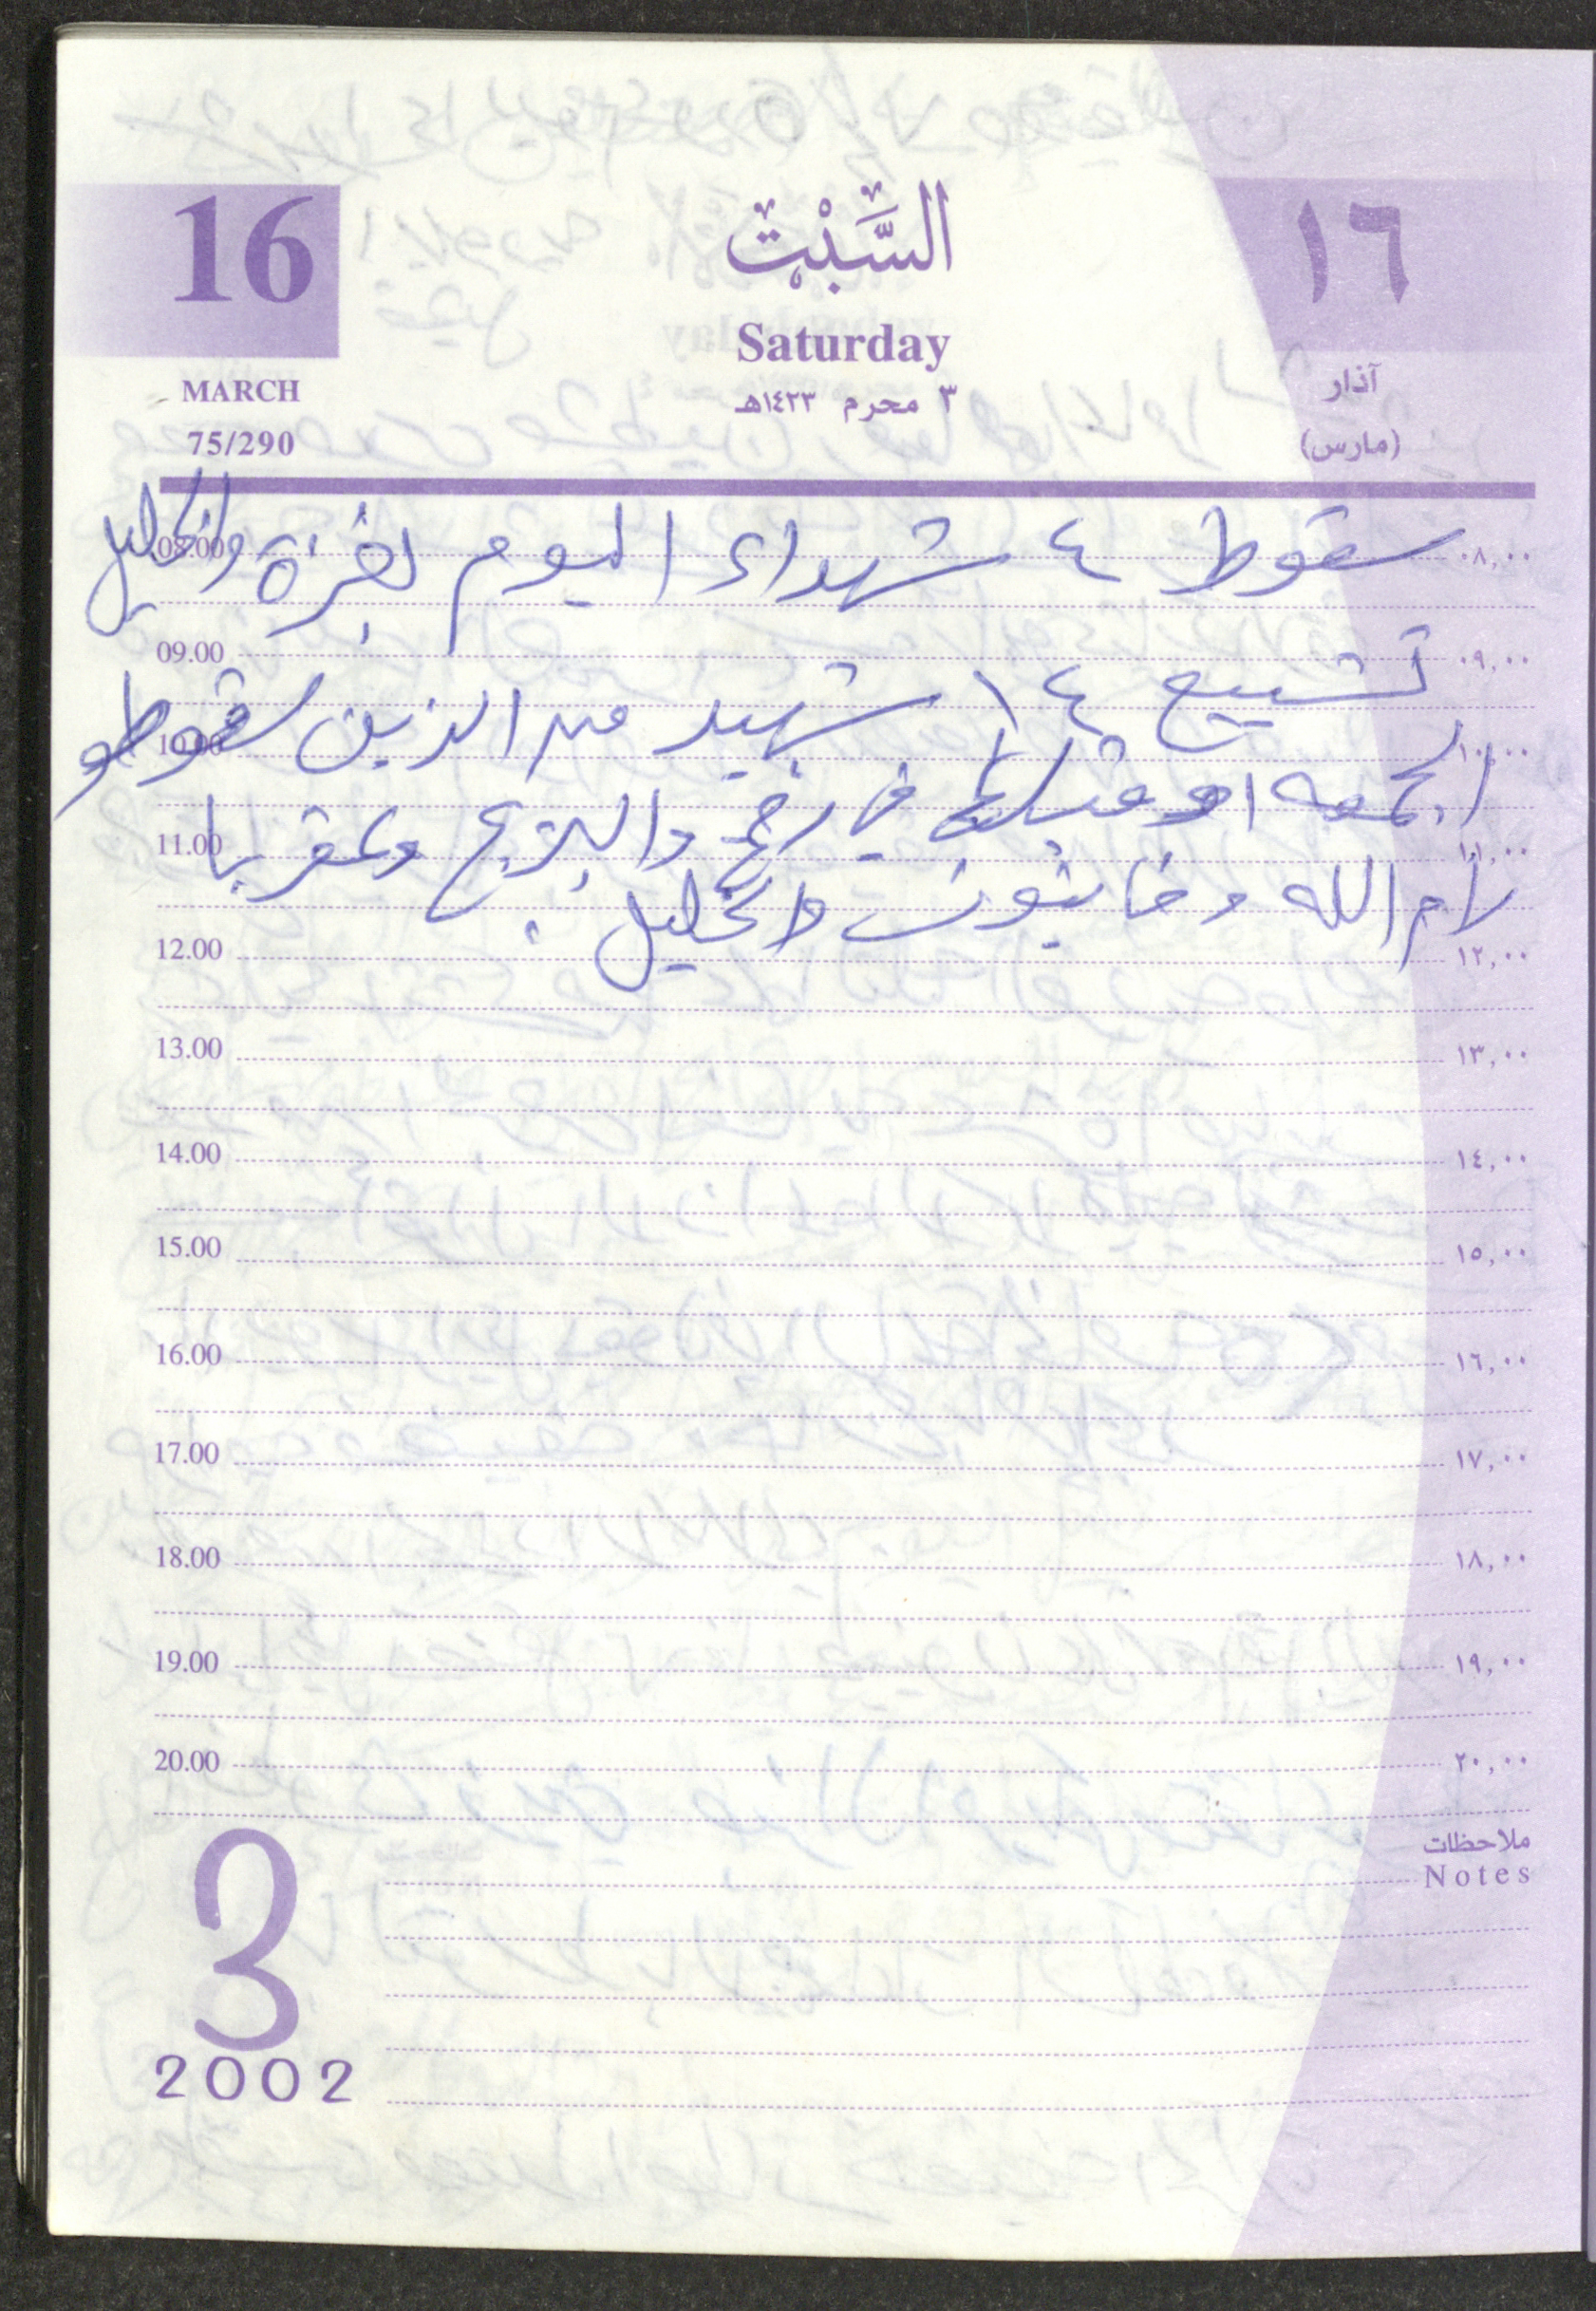 16
السَّبْت
١٦
Saturday
MARCH
٣ محرم ١٤٢٣هـ
آذار
75/290
(مارس)
سقوط ٤ شهداء اليوم بغزة والخليل
08.00 ٠٨,٠٠
09.00 ٠٩,٠٠
تشييع ١٤ شهيد من الذين سقوطو
10.00 ١٠,٠٠
الجمعه او قبلها في رفح والبريج وعقربا
11.00 ١١,٠٠
لأم الله وخانيونس والخليل
12.00 ١٢,٠٠
13.00 ١٣,٠٠
14.00 ١٤,٠٠
15.00 ١٥,٠٠
16.00 ١٦,٠٠
17.00 ١٧,٠٠
18.00 ١٨,٠٠
19.00 ١٩,٠٠
20.00 ٢٠,٠٠
ملاحظات
Notes
3
2002